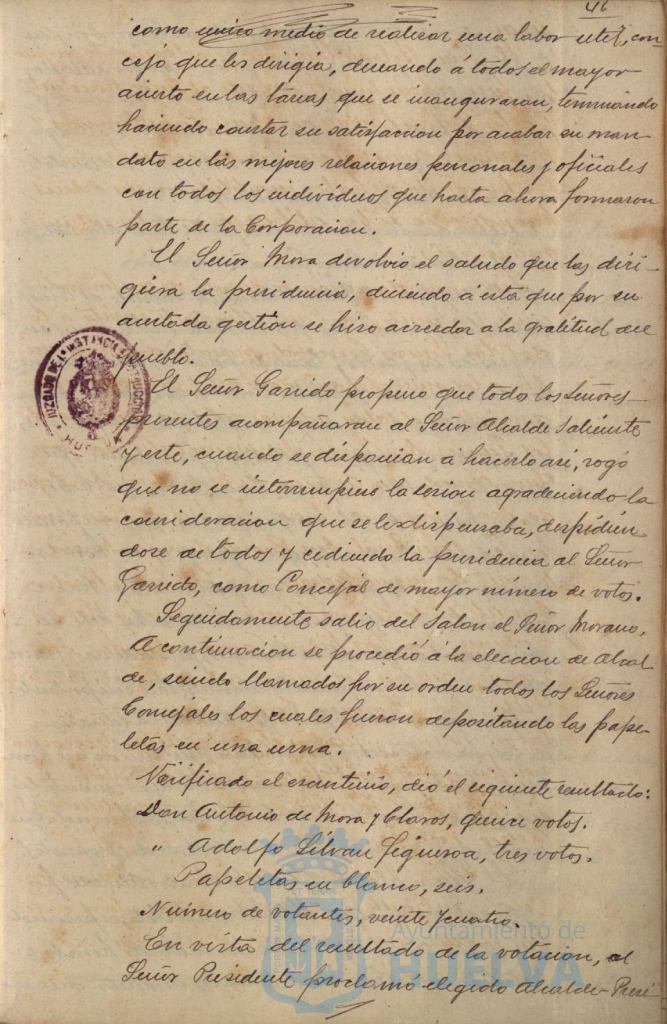 46
como unico medio de realizar una labor util, con-
cejo que les dirigia, deseando á todos el mayor
acierto en las tareas que se inauguraran, terminando
haciendo constar su satisfaccion por acabar su man-
dato en las mejores relaciones personales y oficiales
con todos los individuos que hasta ahora formaron
parte de la Corporacion.
El Señor Mora devolvió el saludo que les diri-
giera la presidencia, diciendo á esta que por su
acertada gestion se hizo acreedor a la gratitud del
pueblo.
El Señor Garrido propuso que todos los Señores
presentes acompañaran al Señor Alcalde Saliente
y este, cuando se disponian á hacerlo asi, rogó
que no se interrumpiese la sesion agradeciendo la
consideracion que se les dispensaba, despidien
dose de todos y cediendo la presidencia al Señor
Garrido, como Concejal de mayor número de votos.
Seguidamente salio del Salon el Señor Morano.
A continuacion se procedió á la eleccion de Alcal
de, siendo llamados por su orden todos los Señores
Concejales los cuales fueron depositando las pape-
letas en una urna.
Verificado el escrutinio, dió el siguiente resultado:
Don Antonio de Mora y Claros, quince votos.
" Adolfo Silvan Figueroa, tres votos.
Papeletas en blanco, seis.
Número de votantes, veinte y cuatro.
En vista del resultado de la votacion, el
Señor Presidente proclamó elegido Alcalde-Presi-
JUZGADO DE 1ª INSTANCIA E INSTRUCCION
HUELVA
Ayuntamiento de
HUELVA